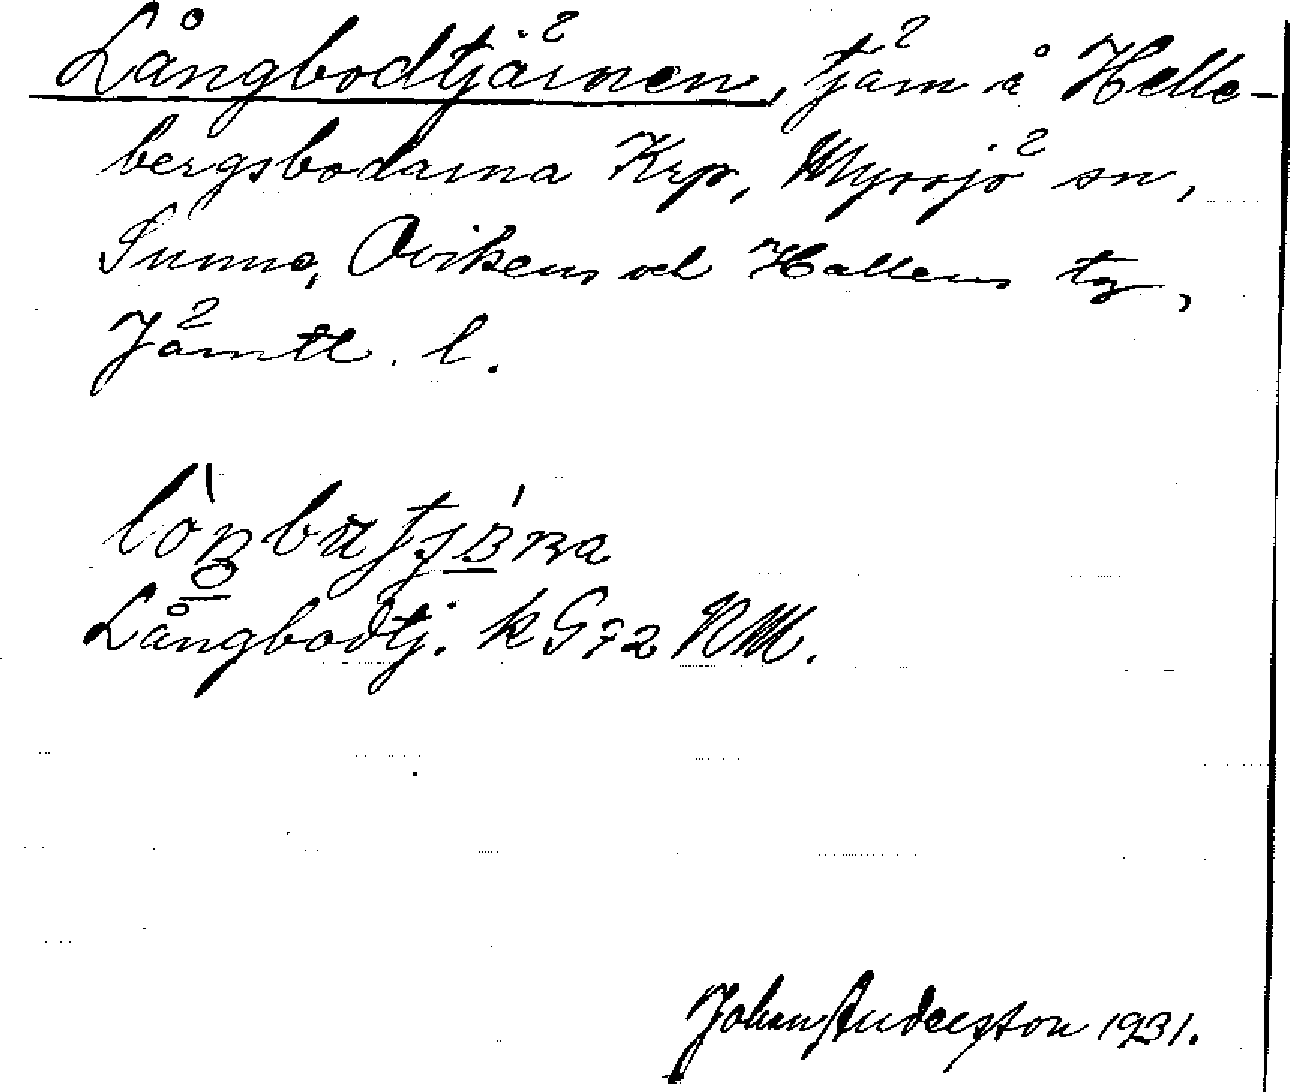 Långbodtjärnen, tjärn å Helle-
bergsbodarna Krp, Myssjö sn,
Sunne, Ovikens och Hallens tg,
Jämtl. l.
Långbodtj. k G72 RM.
Johan Anderston 1931.